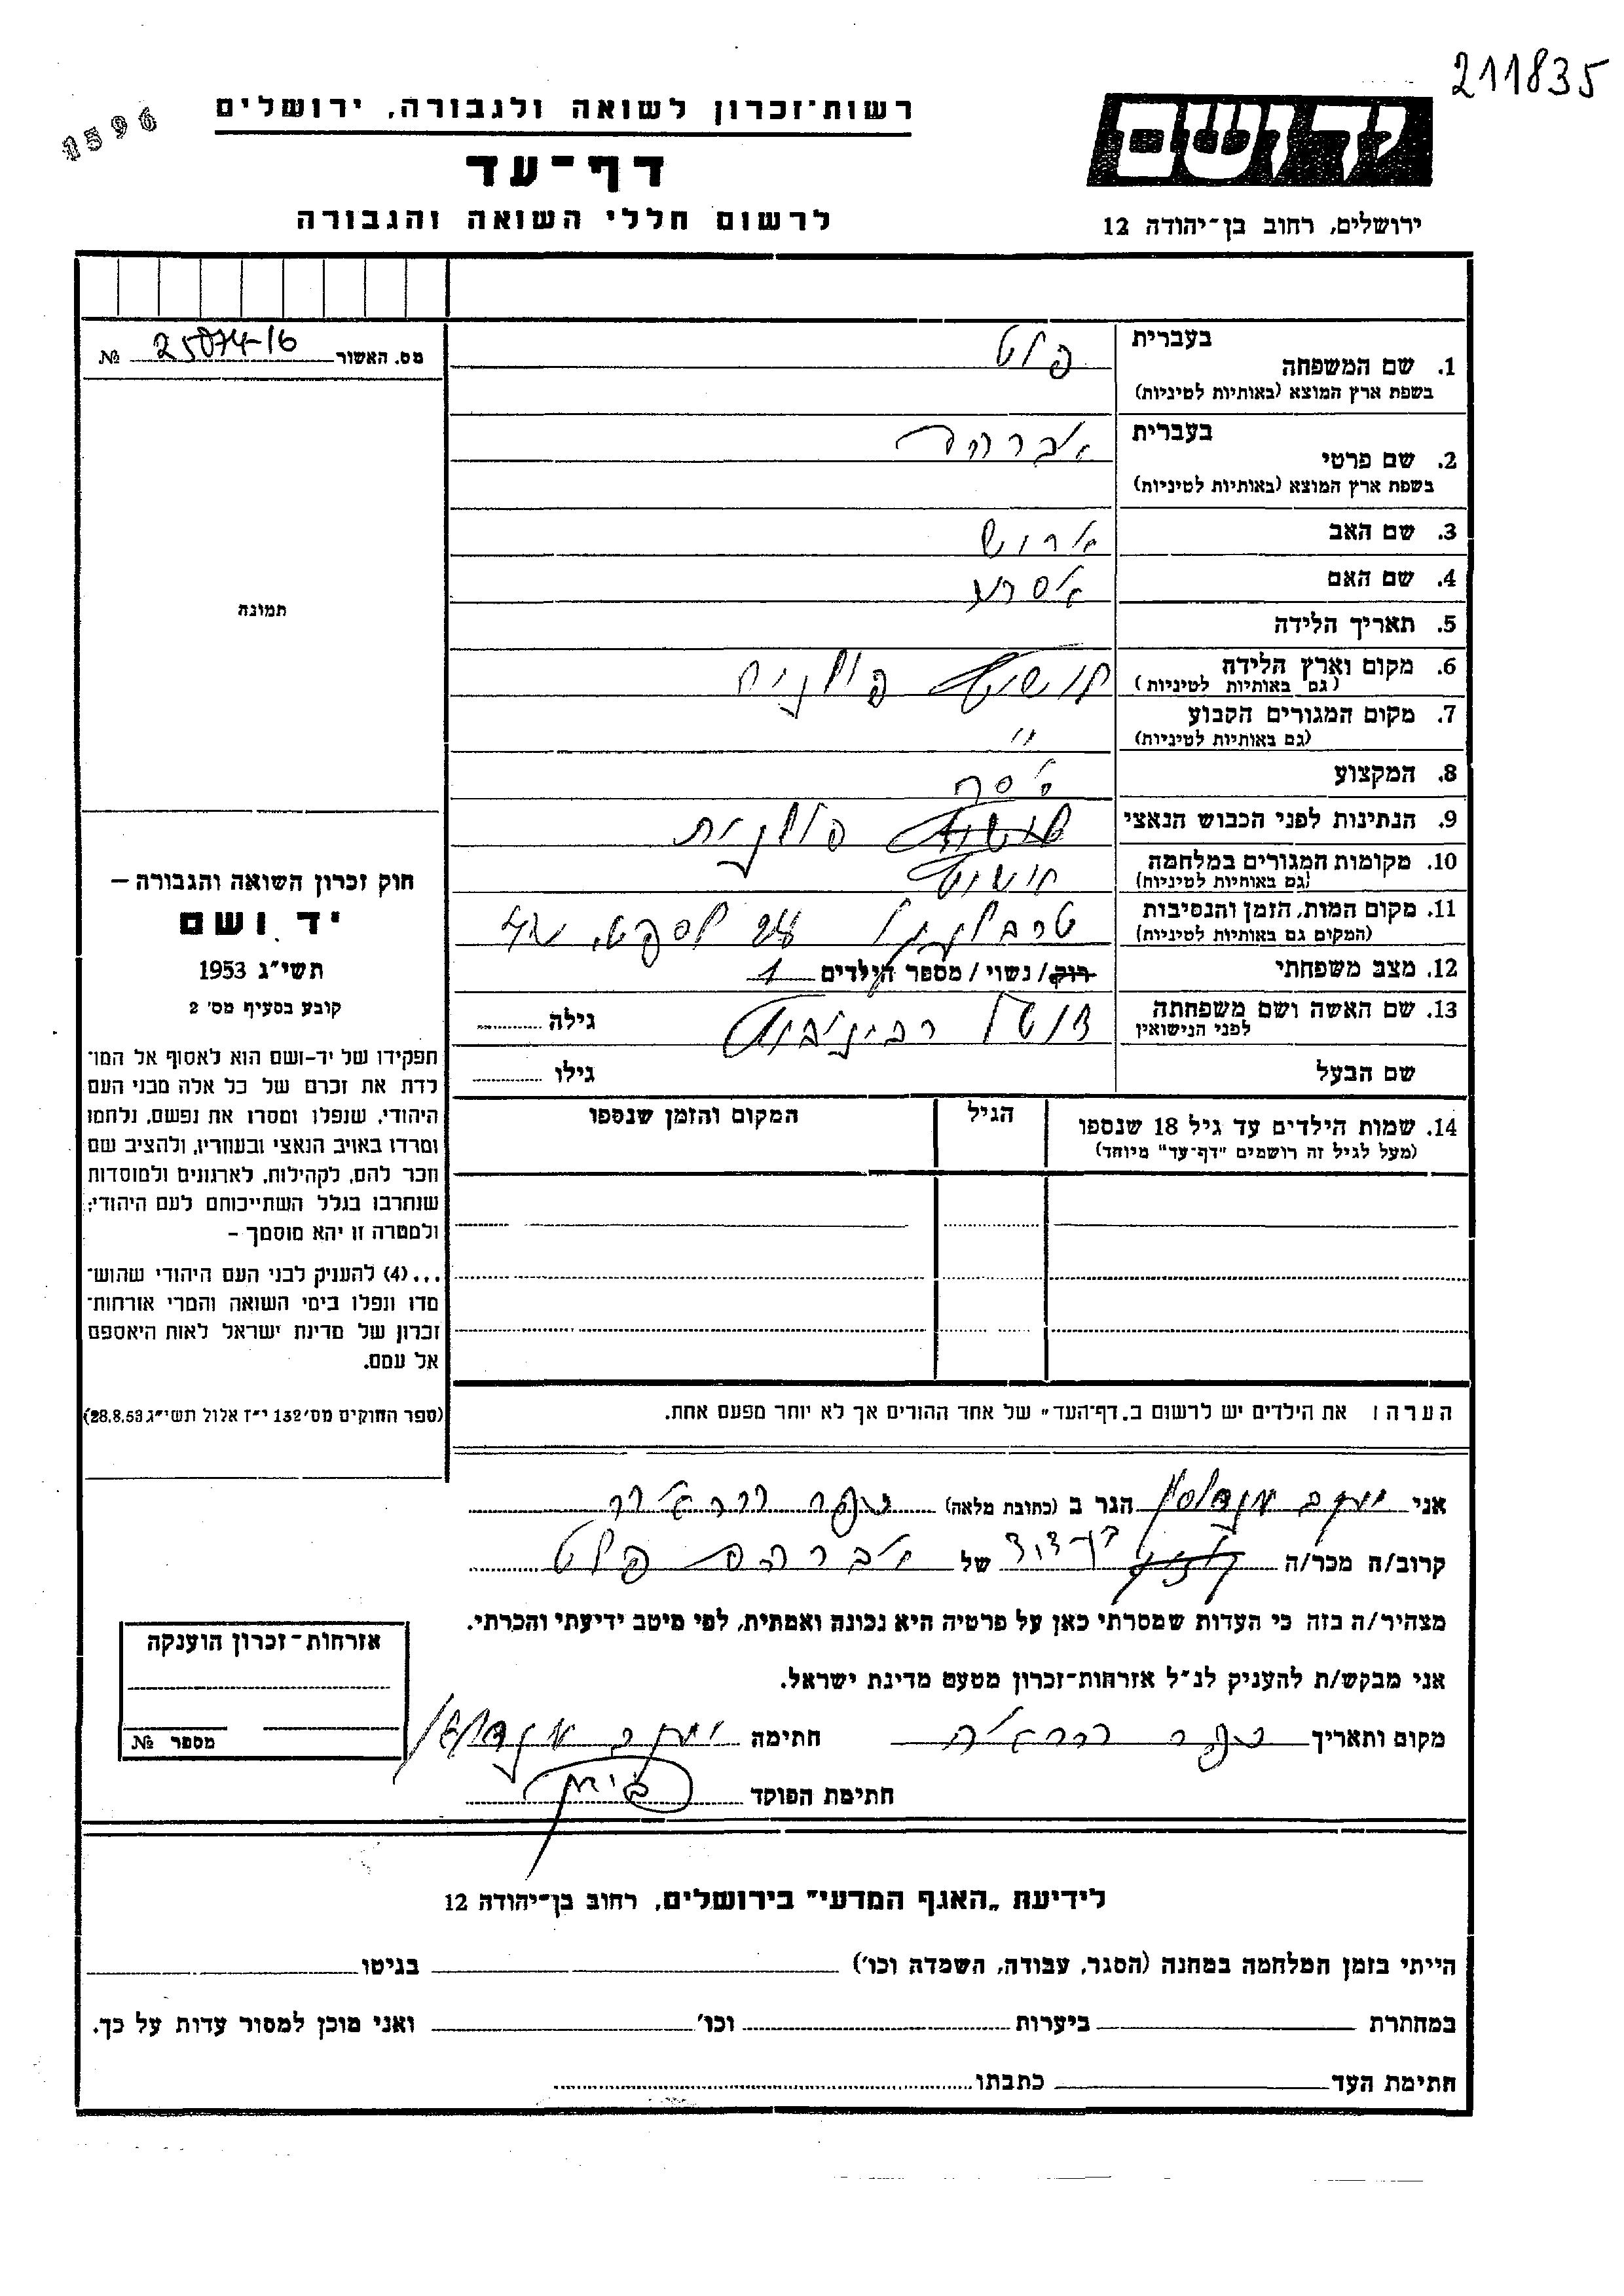 211835
1596
רשות־זכרון לשואה ולגבורה, ירושלים
דף־עד
לרשום חללי השואה והגבורה
ידושם
ירושלים, רחוב בן־יהודה 12
מס. האשור 25074-16 №
בעברית
1. שם המשפחה פלט
בשפת ארץ המוצא (באותיות לטיניות)
בעברית
2. שם פרטי אברהם
בשפת ארץ המוצא (באותיות לטיניות)
3. שם האב
4. שם האם
5. תאריך הלידה
6. מקום וארץ הלידה פולניה
(גם באותיות לטיניות)
7. מקום המגורים הקבוע "
(גם באותיות לטיניות)
8. המקצוע
9. הנתינות לפני הכבוש הנאצי פולנית
10. מקומות המגורים במלחמה
(גם באותיות לטיניות)
11. מקום המות, הזמן והנסיבות
(המקום גם באותיות לטיניות)
12. מצב משפחתי רוק/ נשוי / מספר הילדים 1
13. שם האשה ושם משפחתה רבינוביץ גילה
לפני הנישואין
שם הבעל גילו
14. שמות הילדים עד גיל 18 שנספו הגיל המקום והזמן שנספו
(מעל לגיל זה רושמים "דף־עד" מיוחד)
תמונה
חוק זכרון השואה והגבורה –
יד ושם
תשי"ג 1953
קובע בסעיף מס' 2
תפקידו של יד-ושם הוא לאסוף אל המו־
לדת את זכרם של כל אלה מבני העם
היהודי, שנפלו ומסרו את נפשם, נלחמו
ומרדו באויב הנאצי ובעוזריו, ולהציב שם
וזכר להם, לקהילות, לארגונים ולמוסדות
שנחרבו בגלל השתייכותם לעם היהודי;
ולמטרה זו יהא מוסמך –
...(4) להעניק לבני העם היהודי שהוש־
מדו ונפלו בימי השואה והמרי אזרחות־
זכרון של מדינת ישראל לאות היאספם
אל עמם.
(ספר החוקים מס' 132 י"ז אלול תשי"ג 28.8.53)
הערה: את הילדים יש לרשום ב„דף־העד" של אחד ההורים אך לא יותר מפעם אחת.
אני יעקב הגר ב (כתובת מלאה) כפר
קרוב/ה מכר/ה בן-דוד של אברהם פלט
מצהיר/ה בזה כי העדות שמסרתי כאן על פרטיה היא נכונה ואמתית, לפי מיטב ידיעתי והכרתי.
אני מבקש/ת להעניק לנ"ל אזרחות־זכרון מטעם מדינת ישראל.
מקום ותאריך כפר חתימה יעקב
חתימת הפוקד
אזרחות־זכרון הוענקה
מספר №
לידיעת „האגף המדעי" בירושלים, רחוב בן־יהודה 12
הייתי בזמן המלחמה במחנה (הסגר, עבודה, השמדה וכו') בגיטו
במחתרת ביערות וכו' ואני מוכן למסור עדות על כך.
חתימת העד כתבתו